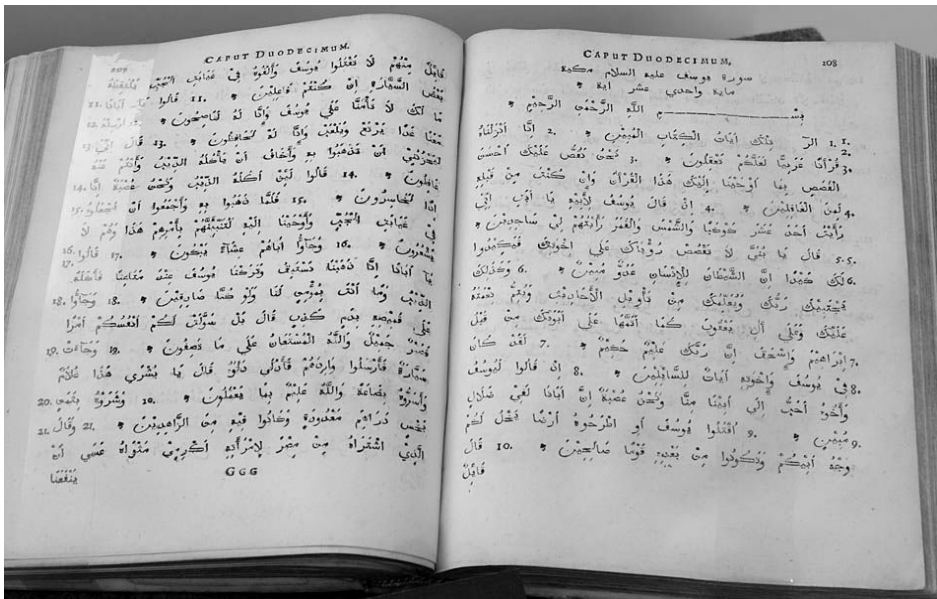 CAPUT DUODECIMUM. 108
سورة يوسف عليه السلام مكية
ماية واحدي عشر اية
بسم الله الرحمن الرحيم
1. 1. الر تلك ايات الكتاب المبين * 2. انا انزلناه
2. 3. قرانا عربيا لعلكم تعقلون * 3. نحن نقص عليك احسن
القصص بما اوحينا اليك هذا القرآن وان كنت من قبله
4. لمن الغافلين * 4. اذ قال يوسف لابيه يا ابت اني
رأيت احد عشر كوكبا والشمس والقمر رأيتهم لي ساجدين *
5. 5. قال يا بني لا تقصص رؤياك علي اخوتك فيكيدوا
6. لك كيدا ان الشيطان للإنسان عدو مبين * 6 وكذلك
يجتبيك ربك ويعلمك من تأويل الأحاديث ويتم نعمته
عليك وعلي آل يعقوب كما اتمها علي ابويك من قبل
7. ابراهيم واسحق ان ربك عليم حكيم * 7. لقد كان
8. في يوسف واخوته ايات للسائلين * 8. اذ قالوا ليوسف
وأخوه أحب الي أبينا منا ونحن عصبة ان ابانا لفي ضلال
9. مبين * 9 اقتلوا يوسف أو اطرحوه أرضا يخل لكم
وجه أبيكم وتكونوا من بعده قوما صالحين * 10. قال
قايل
CAPUT DUODECIMUM. 209
قايل منهم لا تقتلوا يوسف وألقوه في غيابت الجب يلتقطه
بعض السيارة إن كنتم فاعلين * 11. قالوا يا أبانا 11.
ما لك لا تأمنا علي يوسف وإنا له لناصحون * 12. ارسله 12.
معنا غدا يرتع ويلعب وإنا له لحافظون * 13. قال اني 13.
ليحزنني ان تذهبوا به وأخاف ان يأكله الذيب وأنتم عنه
غافلون * 14. قالوا لين أكله الذيب ونحن عصبة انا 14.
اذا لخاسرون * 15. فلما ذهبوا به وأجمعوا ان يجعلوه 15.
في غيابت الجب وأوحينا إليه لتنبينهم بأمرهم هذا وهم لا
يشعرون * 16. وجاوا أباهم عشاء يبكون * 17. قالوا 16.
يا أبانا إنا ذهبنا نستبق وتركنا يوسف عند متاعنا فأكله 17.
الذيب وما أنت بمؤمن لنا ولو كنا صادقين * 18. وجاوا 18.
علي قميصه بدم كذب قال بل سولت لكم أنفسكم أمرا
فصبر جميل والله المستعان علي ما تصفون * 19. وجاءت 19.
سيارة فأرسلوا واردهم فأدلي دلوه قال يا بشري هذا غلام
وأسروه بضاعة والله عليم بما يعملون * 20. وشروه بثمن 20.
بخس دراهم معدودة وكانوا فيه من الزاهدين * 21. وقال 21.
الذي اشتراه من مصر لامرأته اكرمي مثواه عسي أن
GGG ينفعنا